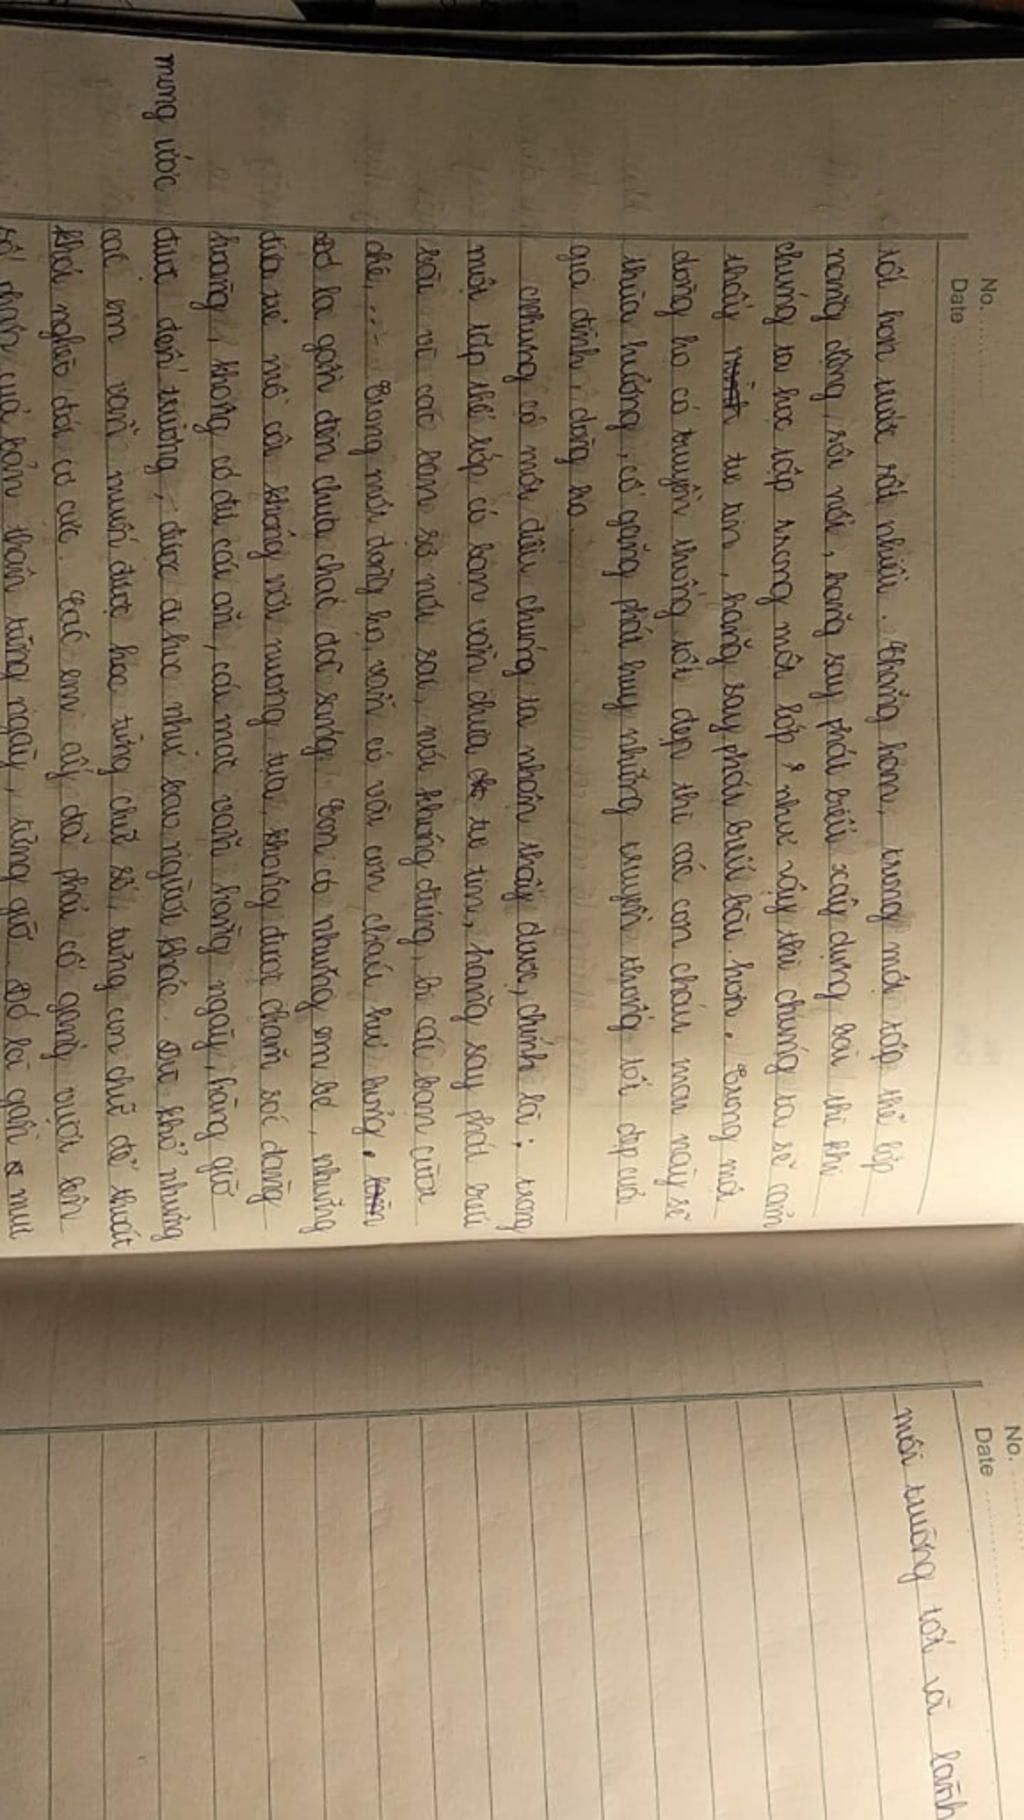 No.
Date
tốt hơn trước rất nhiều. Chẳng hạn, trong một tập thể lớp
năng động, sôi nổi, hăng say phát biểu xây dựng bài thì khi
chúng ta học tập trong một lớp như vậy thì chúng ta sẽ cảm
thấy tự tin, hăng say phát biểu bài hơn. Trong một
dòng họ có truyền thống tốt đẹp thì các con cháu mai này sẽ
thừa hưởng, cố gắng phát huy những truyền thống tốt đẹp của
gia đình, dòng họ.
Nhưng có một điều chúng ta nhận thấy được, chính là: trong
một tập thể lớp có bạn vẫn chưa tự tin, hăng say phát biểu
bài vì các bạn sợ nói sai, nói không đúng, bị các bạn cười
chê,... Trong một dòng họ, vẫn có vài con cháu hư hỏng.
Đó là gần đèn chưa chắc đã sáng. Còn có những em bé, những
đứa trẻ mồ côi không nơi nương tựa, không được chăm sóc đàng
hoàng, không có đủ cái ăn, cái mặc hằng ngày, hằng giờ
mong ước được đến trường, được đi học như bao người khác. Dù khổ nhưng
các em vẫn muốn được học từng chữ số, từng con chữ để thoát
khỏi nghèo đói cơ cực. Các em ấy đã phải cố gắng vượt lên
số phận của bản thân từng ngày, từng giờ. Đó là gần mực
No.
Date
môi trường tốt và lành